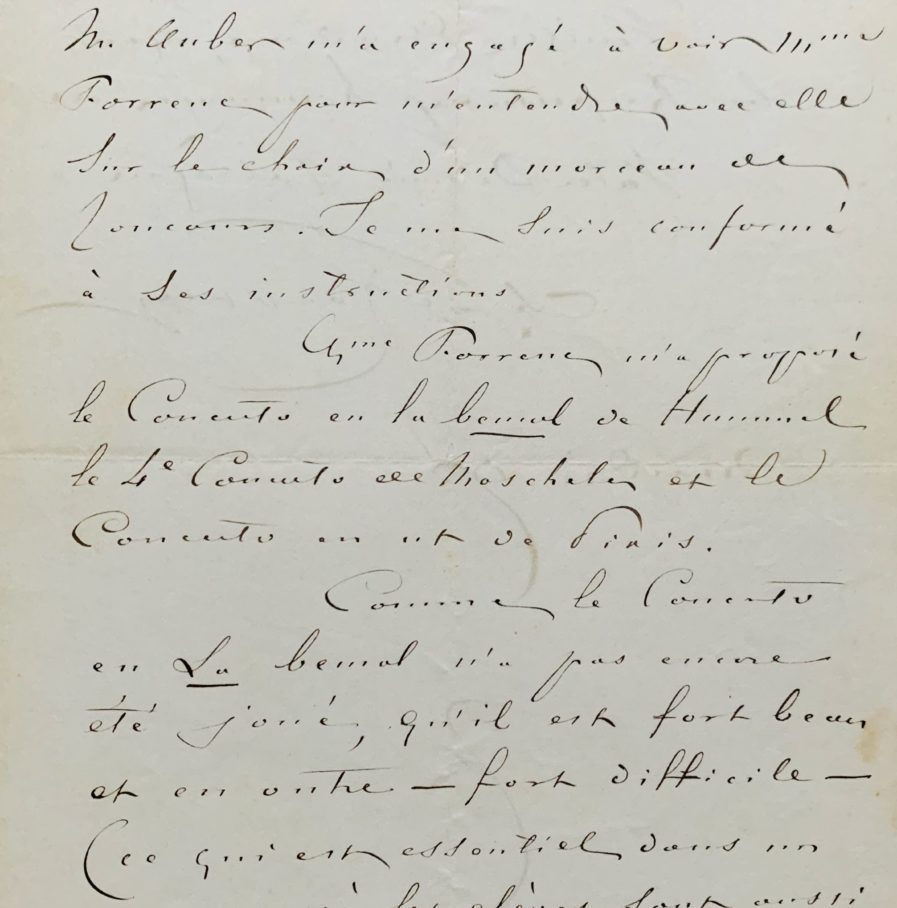 M. Auber m'a engagé à voir Mme
Farrenc pour m'entendre avec elle
Sur le choix d'un morceau de
Concours. Je me Suis conformé
à Ses instructions
Mme Farrenc m'a proposé
le Concerto en la bemol de Hummel
le 4e Concerto de Moscheles et le
Concerto en ut de Pixis.
Comme le Concerto
en La bemol n'a pas encore
été joué, qu'il est fort beau
et en outre – fort difficile –
(ce qui est essentiel dans un
à les élèves sont aussi